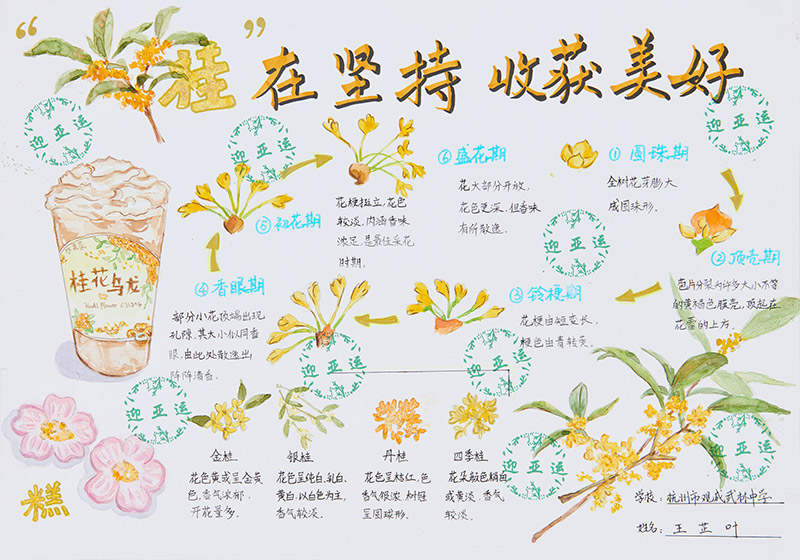 “桂”在坚持 收获美好
迎亚运
迎亚运
迎亚运
① 圆珠期
全树花芽膨大
成圆珠形。
② 顶壳期
苞片分裂为许多大小不等
的黄褐色膜壳,
花蕾的上方。
③ 铃梗期
花梗由短变长,
梗色由青转黄。
迎亚运
④ 香眼期
部分小花顶端出现
孔隙,其大小似同香
眼,由此处散逸出
阵阵清香。
⑤ 初花期
花梗挺立,花色
较淡,内涵香味
浓足,是最佳采花
时期。
⑥ 盛花期
花大部分开放,
花色更深,但香味
有所散逸。
桂花乌龙
迎亚运
迎亚运
迎亚运
糕
金桂
花色黄或呈金黄
色,香气浓郁
开花量多。
银桂
花色呈纯白、乳白、
黄白,以白色为主,
香气较淡。
丹桂
花色呈桔红,色
香气银浓 树冠
呈圆球形。
四季桂
花朵颜色稍白
或黄淡 香气
较淡。
迎亚运
迎亚运
学校:杭州市观成武林中学
姓名:王芷叶